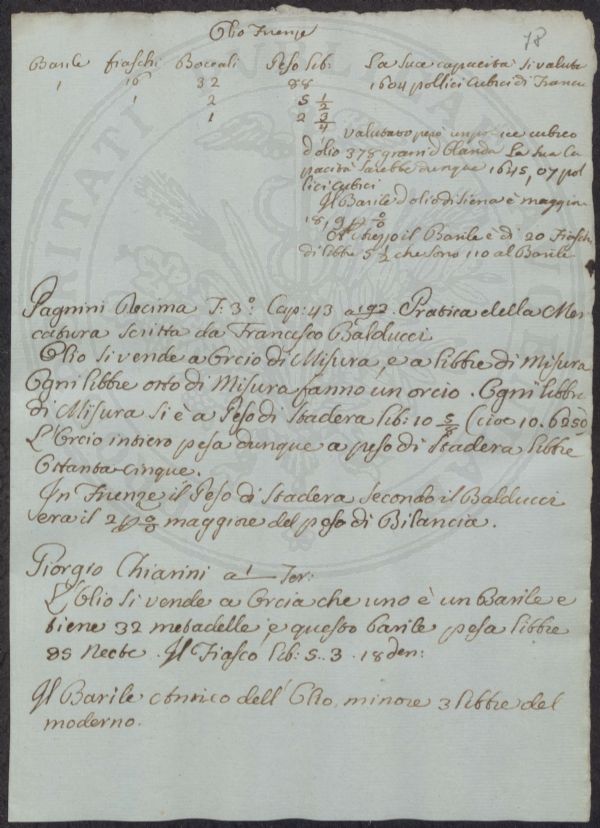 78
Olio Firenze
Barile fiaschi Boccali Peso lib: La sua capacità si valuta
1 16 32 88 1604 pollici Cubici di Francia
1 2 5 1/2
1 2 3/4 valutato però un pollice cubico
d'olio 378 grani d'Olanda La sua Ca
pacità sarebbe dunque 1645,07 pol
lici Cubici
Il Barile d'olio di Siena è maggior
18,9 p 0/0
il Barile è di 20 Fiaschi
di libbre 5 1/2 che sono 110 al Barile
Pagnini Decima T: 3°: Cap: 43 a 192. Pratica della Mer
catura Scritta da Francesco Balducci
Olio si vende a Orcio di Misura, e a libbre di Misura
Ogni libbre otto di Misura fanno un orcio. Ogni libbre
di Misura si è a Peso di Stadera lib: 10 5/8 (cioè 10.6250
L'Orcio intiero pesa dunque a peso di Stadera libbre
Ottanta-cinque.
In Firenze il Peso di Stadera Secondo il Balducci
era il 2 p 0/0 maggiore del peso di Bilancia.
Giorgio Chiarini a 1 Ter:
L'Olio si vende a Orcia che uno è un Barile e
tiene 32 metadelle, e questo barile pesa libbre
85 Nette. Il Fiasco lib: 5. 3. 18 den:
Il Barile Antico dell'Olio, minore 3 libbre del
moderno.